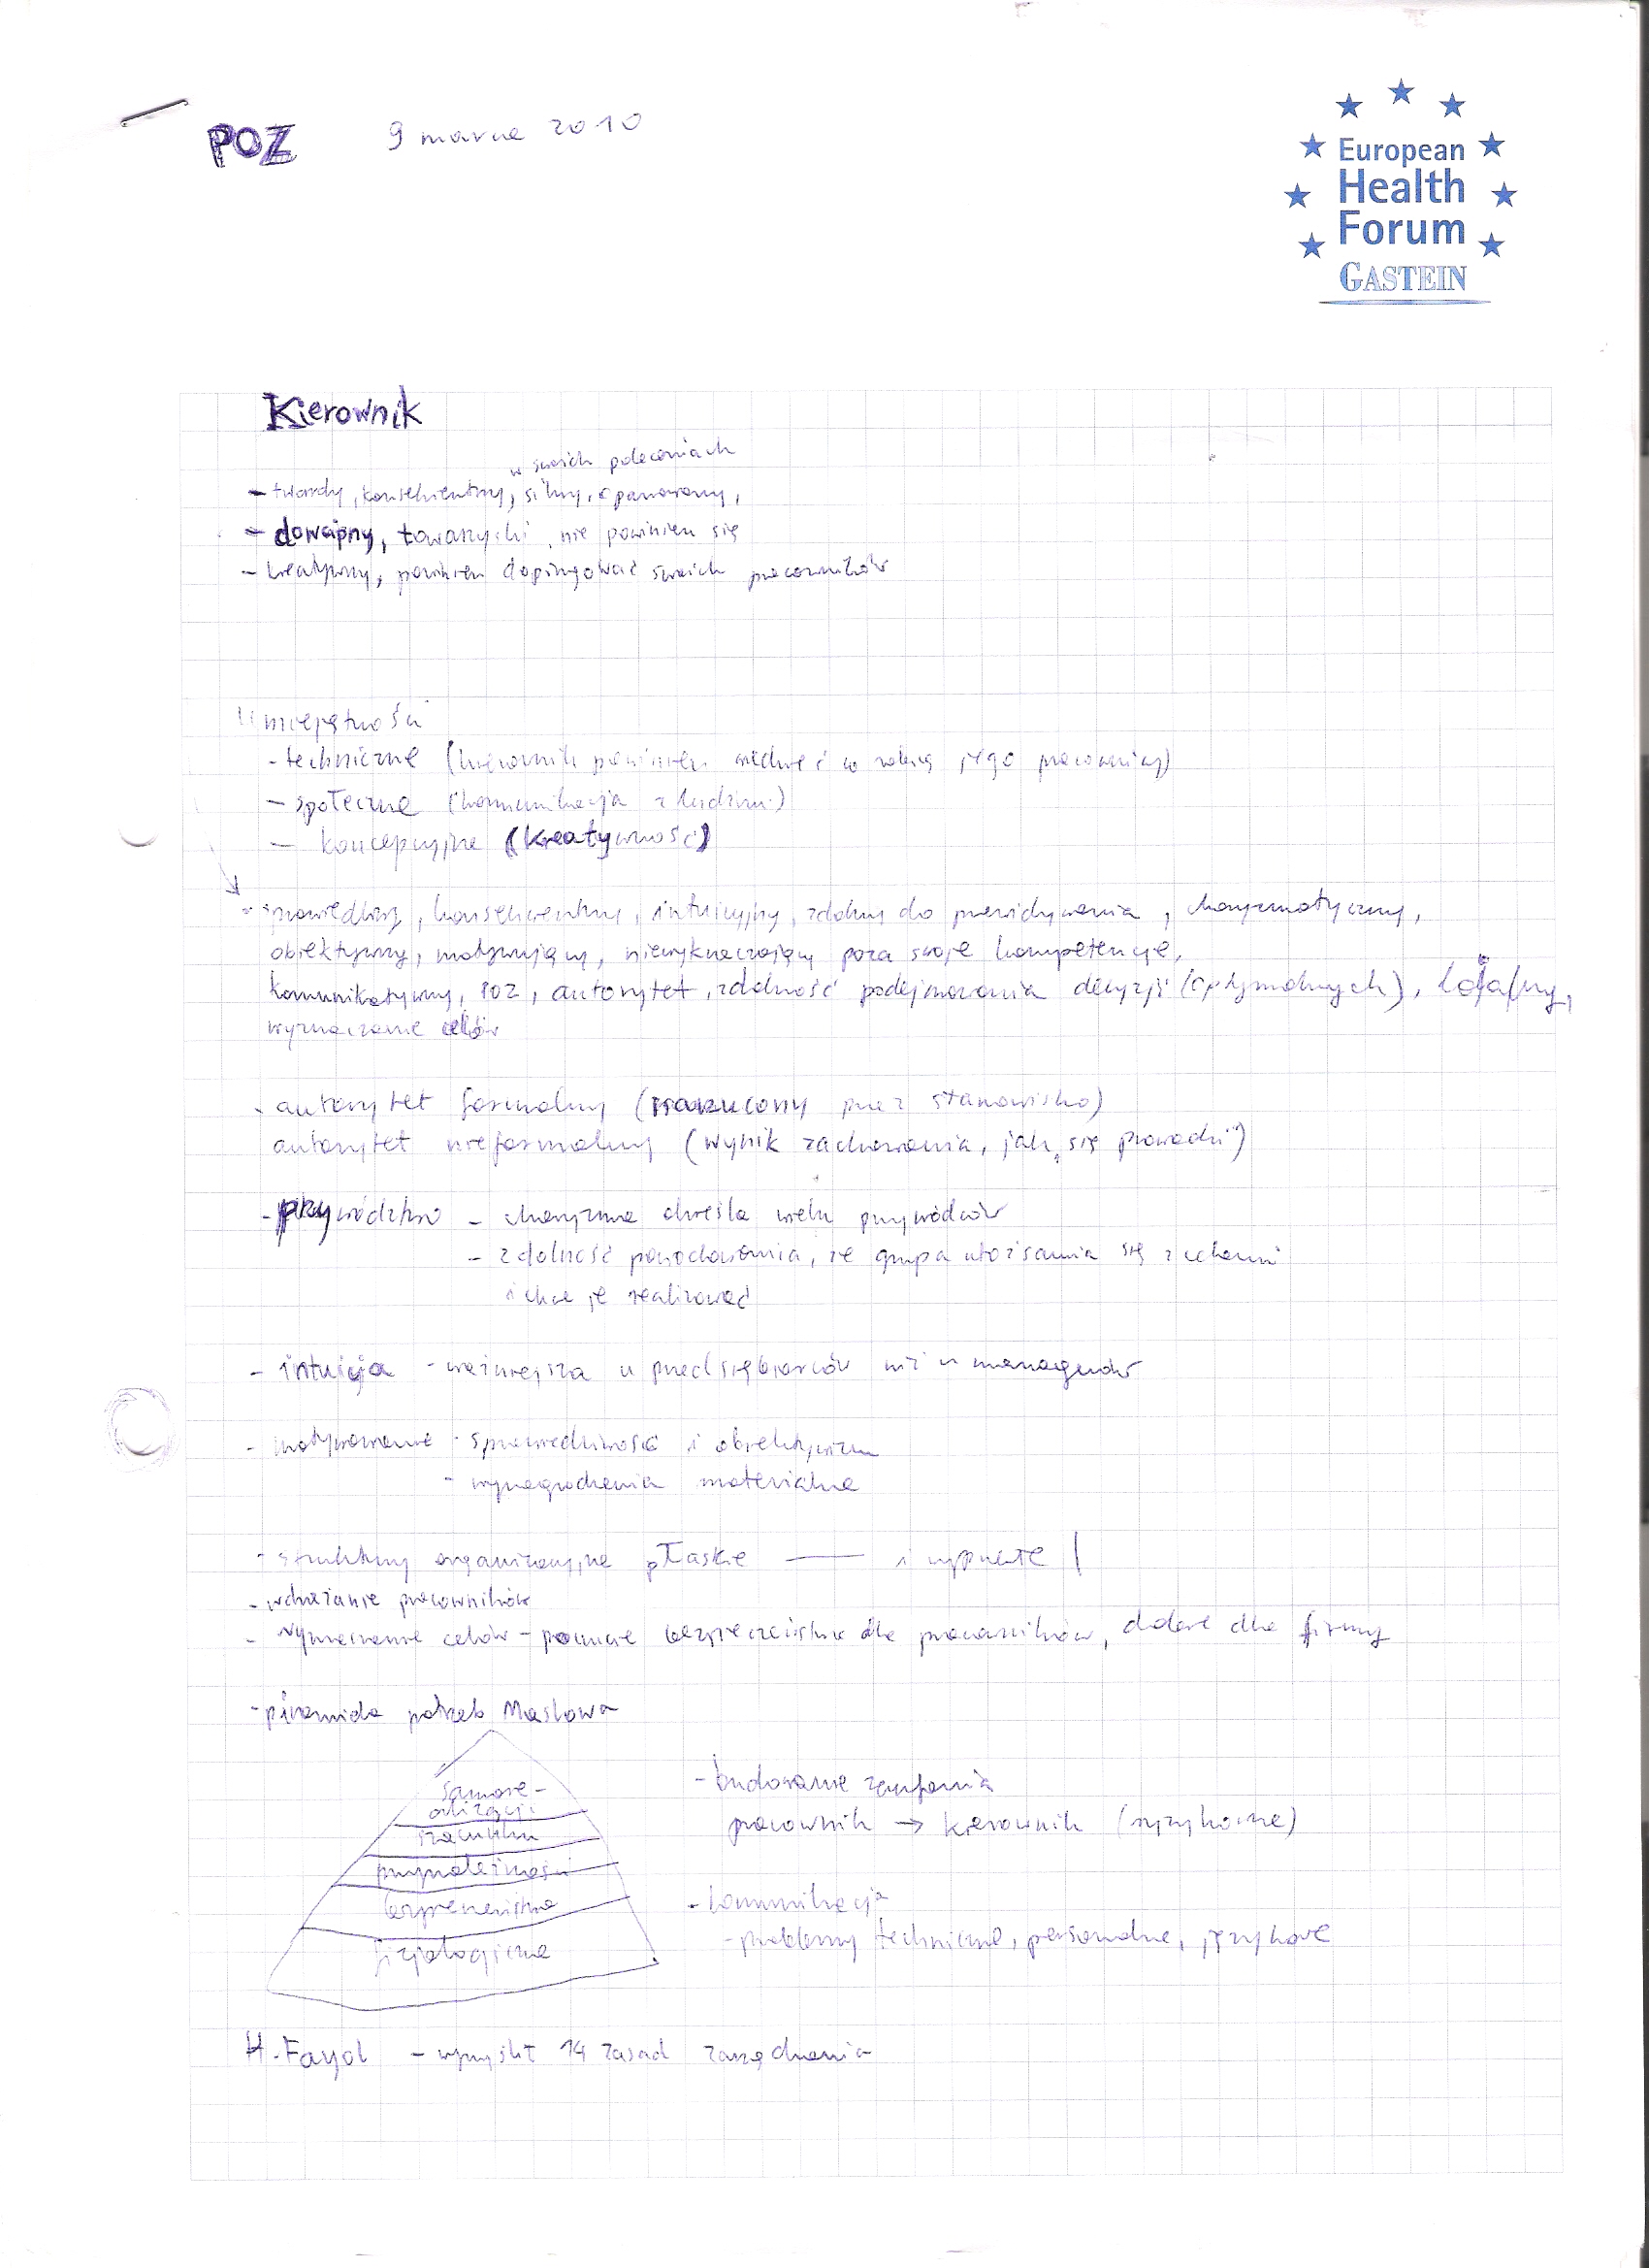 POZ 9 marca 2010
European
Health
Forum
GASTEIN
Kierownik
w swoich poleceniach
- twardy, konsekwentny, silny, opanowany,
- dowcipny, towarzyski, nie powinien się
- kreatywny, powinien dopingować swoich pracowników
Umiejętności
- techniczne (kierownik powinien wiedzieć co robią jego pracownicy)
- społeczne (komunikacja z ludźmi)
- koncepcyjne (kreatywność)
- sprawiedliwy, konsekwentny, intuicyjny, zdolny do przewidywania, charyzmatyczny,
obiektywny, motywujący, niewykraczający poza swoje kompetencje,
komunikatywny, autorytet, zdolność podejmowania decyzji (optymalnych), lojalny,
wyznaczanie celów
- autorytet formalny (narzucony przez stanowisko)
autorytet nieformalny (wynik zachowania, jak się prowadzi)
- przywództwo - charyzma określa wielu przywódców
- zdolność powodowania, że grupa utożsamia się z celami
i chce je realizować
- intuicja - ważniejsza u przedsiębiorców niż u managerów
- motywowanie - sprawiedliwość i obiektywizm
- wynagrodzenia materialne
- struktury organizacyjne płaskie — i wypukłe |
- wdrażanie pracowników
- wyznaczanie celów - poczucie bezpieczeństwa dla pracowników, dobre dla firmy
- piramida potrzeb Maslowa
samore-
alizacji
szacunku
przynależności
bezpieczeństwa
fizjologiczne
- budowanie zaufania
pracownik → kierownik (ryzykowne)
- komunikacja
- problemy techniczne, personalne, językowe
H. Fayol - wymyślił 14 zasad zarządzania